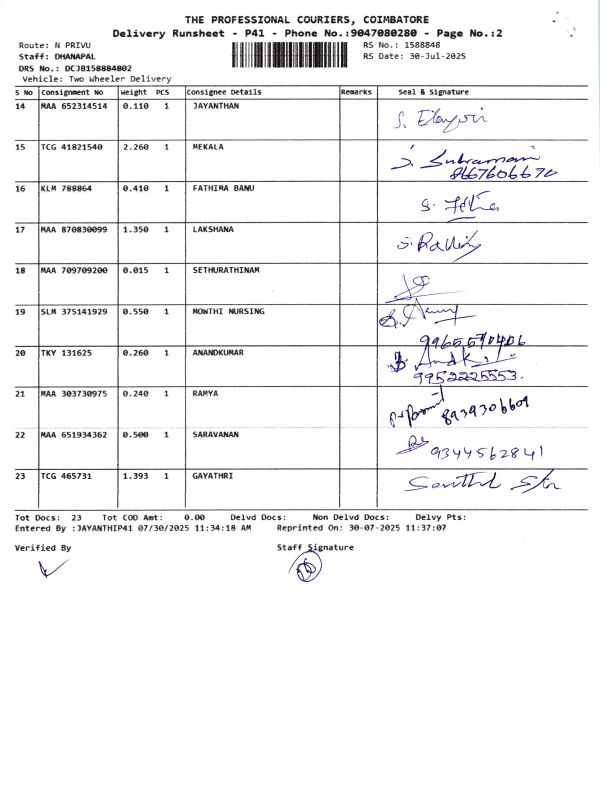 THE PROFESSIONAL COURIERS, COIMBATORE
Delivery Runsheet - P41 - Phone No.:9047080280 - Page No.:2
Route: N PRIVU RS No.: 1588848
Staff: DHANAPAL RS Date: 30-Jul-2025
DRS No.: DCJB158884802
Vehicle: Two Wheeler Delivery
S No Consignment No Weight PCS Consignee Details Remarks Seal & Signature
14 MAA 652314514 0.110 1 JAYANTHAN
15 TCG 41821540 2.260 1 MEKALA J. Subramani
8667606670
16 KLM 788864 0.410 1 FATHIMA BANU
17 MAA 870830099 1.350 1 LAKSHANA
18 MAA 709709200 0.015 1 SETHURATHINAM
19 SLM 375141929 0.550 1 MOWTHI NURSING
9965570406
20 TKY 131625 0.260 1 ANANDKUMAR
9952225553.
21 MAA 303730975 0.240 1 RAMYA 8939306609
22 MAA 651934362 0.500 1 SARAVANAN 9344562841
23 TCG 465731 1.393 1 GAYATHRI
Tot Docs: 23 Tot COD Amt: 0.00 Delvd Docs: Non Delvd Docs: Delvy Pts:
Entered By :JAYANTHIP41 07/30/2025 11:34:18 AM Reprinted On: 30-07-2025 11:37:07
Verified By Staff Signature